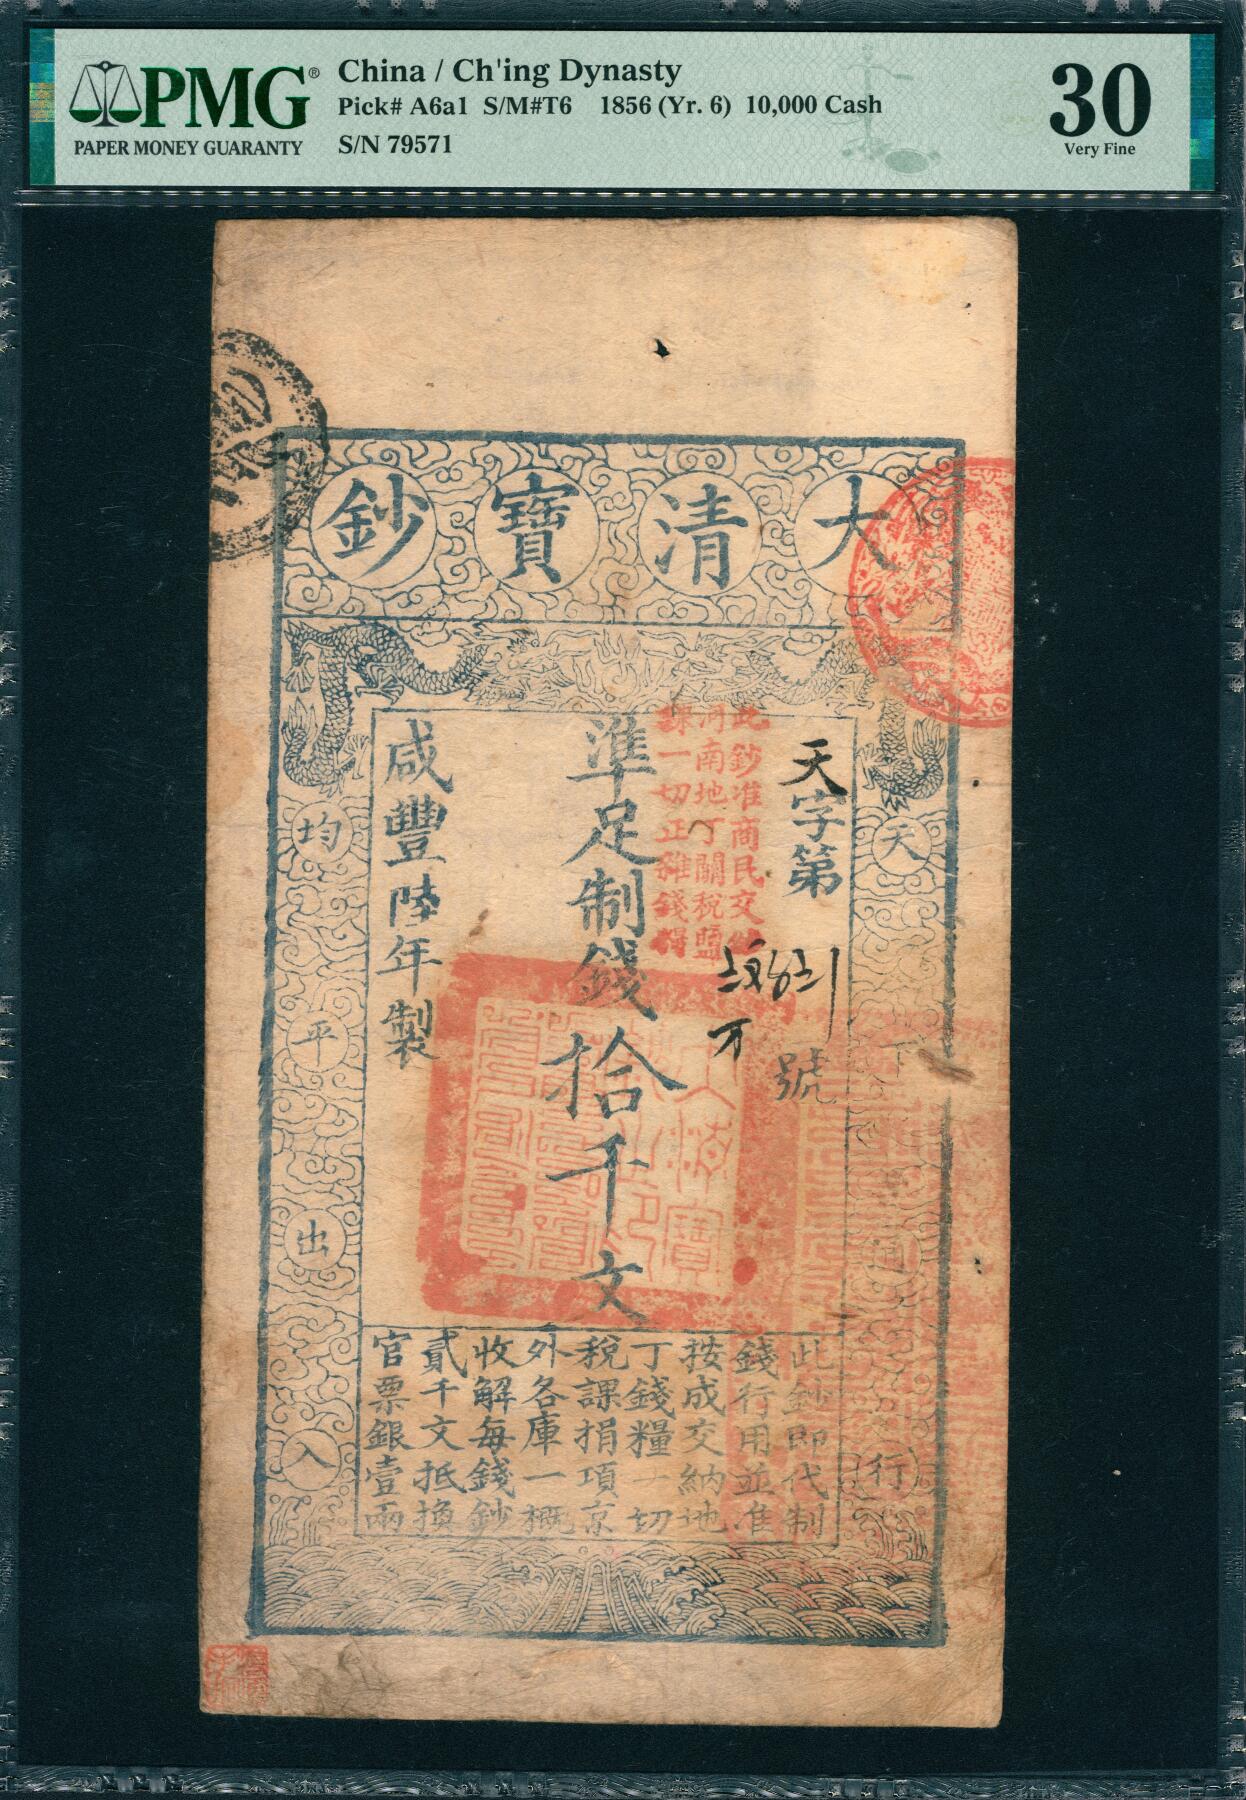 PMG®
PAPER MONEY GUARANTY
China / Ch'ing Dynasty
Pick# A6a1 S/M#T6 1856 (Yr. 6) 10,000 Cash
S/N 79571
30
Very Fine
大清寶鈔
天下通行
天字第
號
此鈔准商民交
河南地丁關稅鹽
課一切正雜錢糧
準足制錢拾千文
咸豐陸年製
均平出入
此鈔即代制
錢行用並准
按成交納地
丁錢糧一切
稅課捐項京
外各庫一概
收解每錢鈔
貳千文抵換
官票銀壹兩